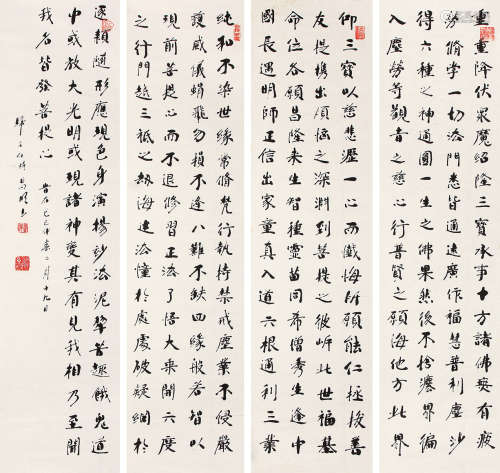 重重降伏眾魔紹隆三寶承事十方諸佛無有疲
勞脩學一切法門悉皆通達廣作福慧普利塵沙
得六種之神通圓一生之佛果然後不捨塵界徧
入塵勞等觀音之慈心行普賢之願海他方此界
仰三寶以慈悲瀝一心而懺悔所願能仁拯援善
友提攜出煩惱之深淵到菩提之彼岸此世福基
命位各願昌隆來生智種靈苗同希增秀生逢中
國長遇明師正信出家童真入道六根通利三業
純和不染世緣常脩梵行執持禁戒塵業不侵嚴
護威儀蜎飛勿損不逢八難不缺四緣般若智以
現前菩提心而不退修習正法了悟大乘開六度
之行門越三祇之劫海建法幢於處處破疑網於
逐類隨形應現色身演揚妙法泥犂苦趣餓鬼道
中或放大光明或現諸神變其有見我相乃至聞
我名皆發菩提心
二月十九日